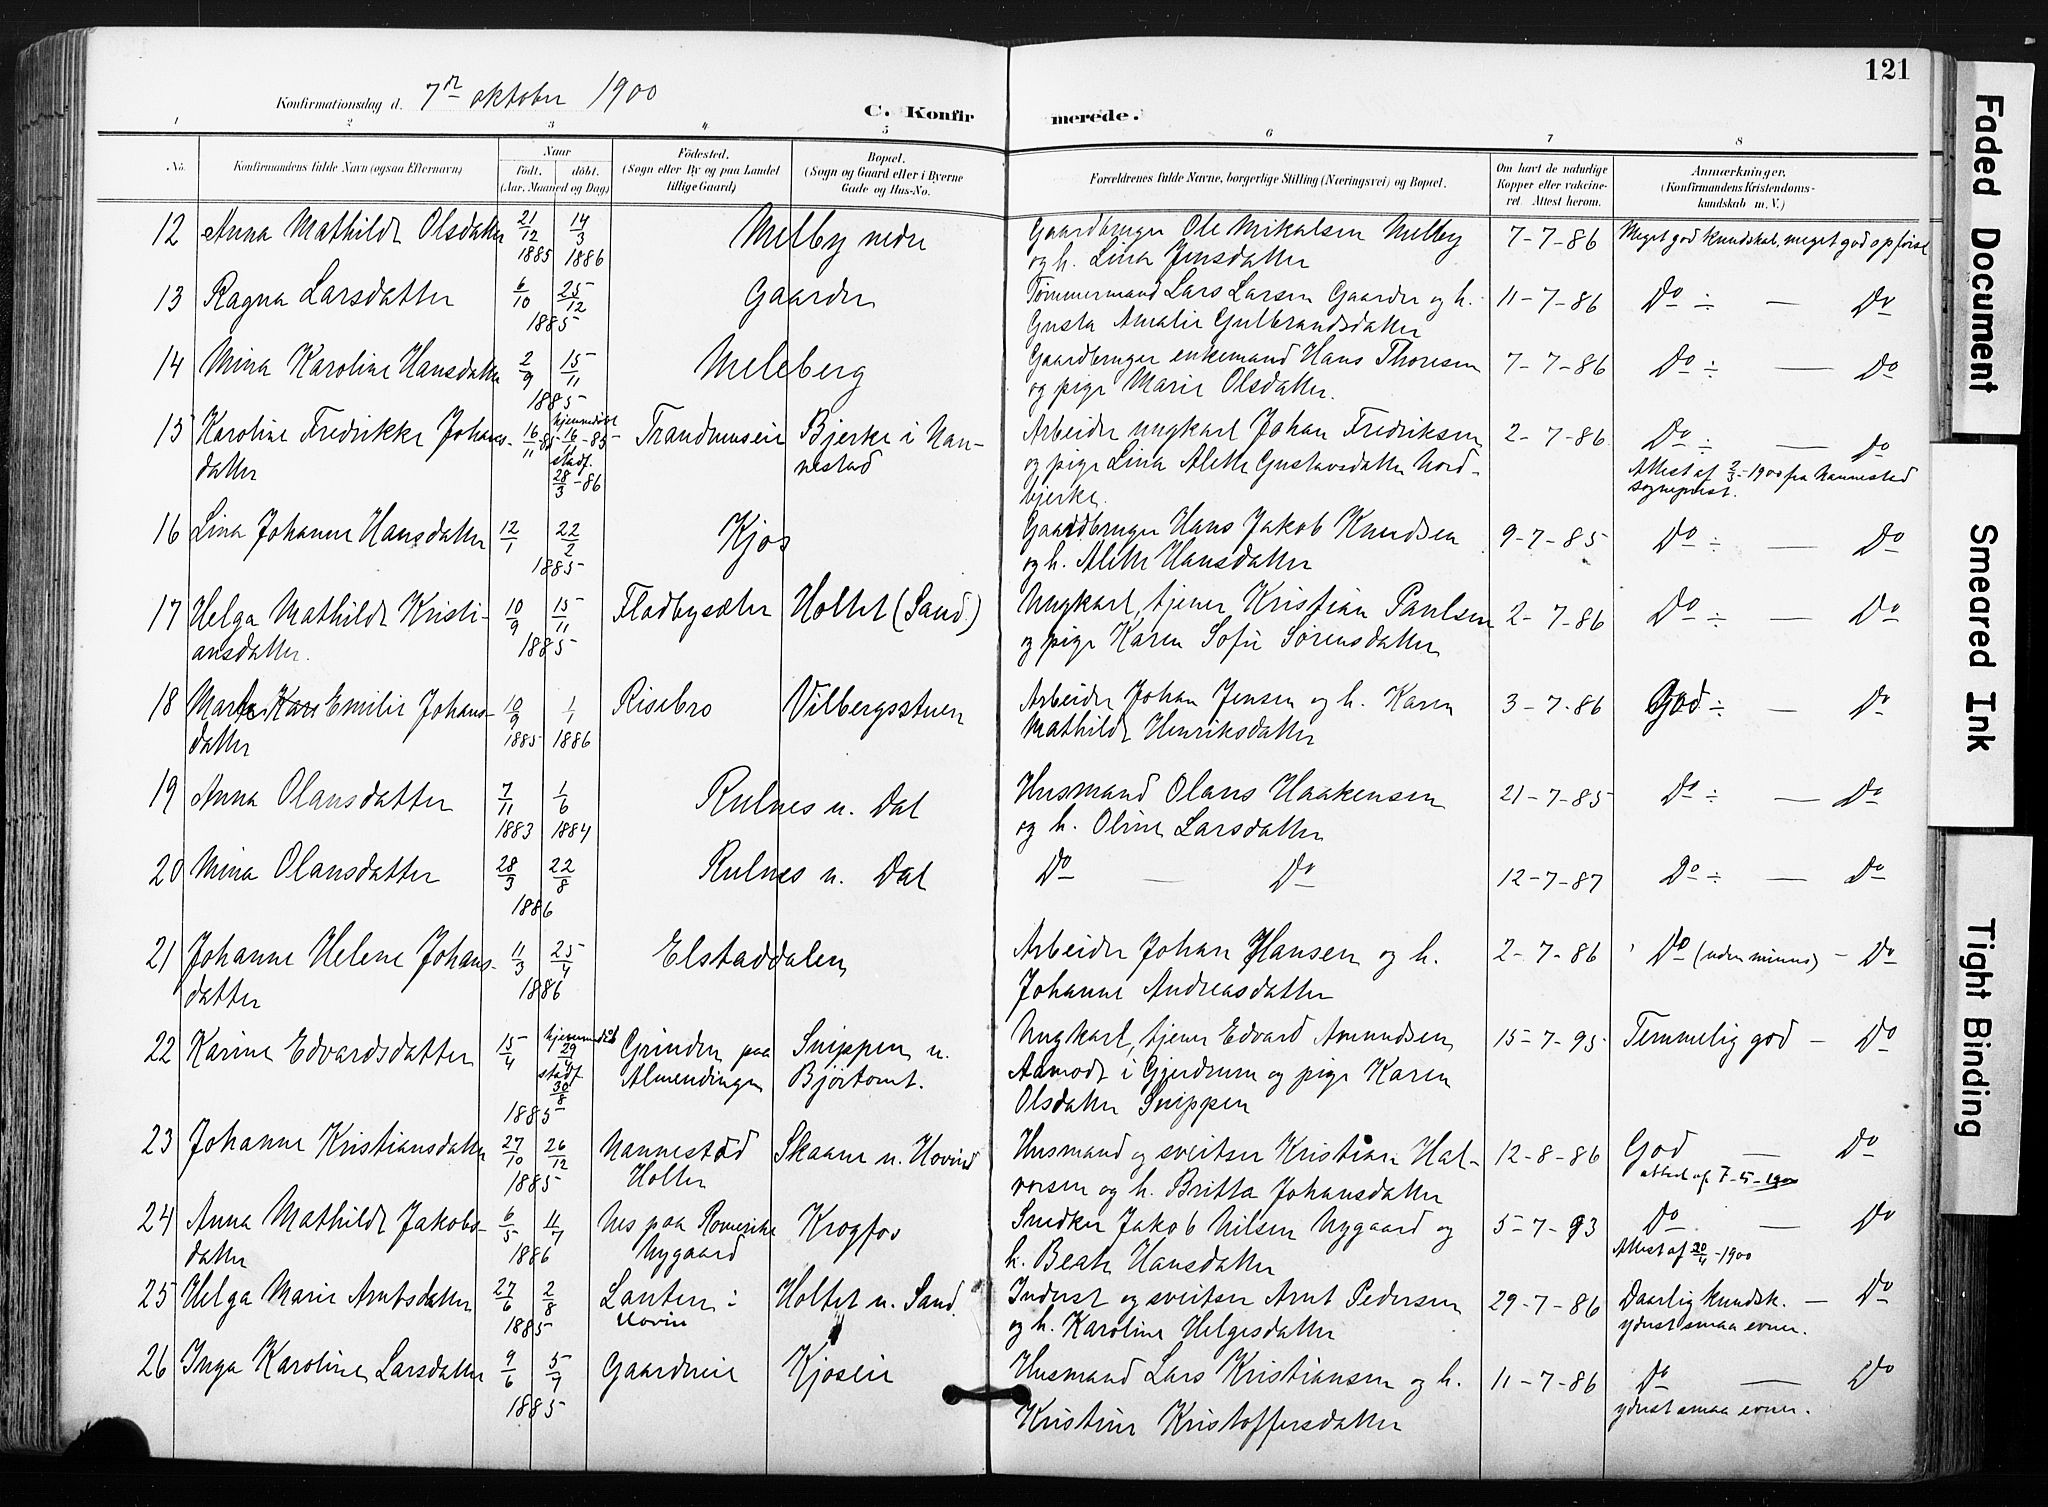 121
Konfirmationsdag d. 7de oktober 1900
C. Konfirmerede.
1 2 3 4 5 6 7 8
No. Konfirmandens fulde Navn (ogsaa Efternavn) Naar födt. döbt. (Aar, Maaned og Dag) Födested. (Sogn eller By og paa Landet tillige Gaard) Bopæl. (Sogn og Gaard eller i Byerne Gade og Hus-No. Forældrenes fulde Navne, borgerlige Stilling (Næringsvei) og Bopæl. Om havt de naturlige Kopper eller vakcineret. Attest herom. Anmærkninger. (Konfirmandens Kristendomskundskab m. V.)
12 Anna Mathilde Olsdatter 21/12 1885 14/3 1886 Melby nedre Gaardbruger Ole Mikalsen Melby 7-7-86 Meget god kundskab, meget god opførsel
og h. Lina Jensdatter
13 Ragna Larsdatter 6/10 25/12 1885 Gaarder Tømmermand Lars Larsen Gaarder og h. 11-7-86 Do ÷ — Do
Gusta Amalie Gulbrandsdatter
14 Mina Karoline Hansdatter 2/9 15/11 1885 Meleberg Gaardbruger enkemand Hans Thoresen 7-7-86 Do ÷ — Do
og pige Marie Olsdatter.
15 Karoline Fredrikke Johans- 16/11-85 hjemmedöbt 16/11-85 Trandumseie Bjerke i Nan- Arbeider ungkarl Johan Fredriksen 2-7-86 Do ÷ — Do
datter stadf. 28/3-86 nestad og pige Lina Alette Gustavsdatter Nord- Attest af 2/3-1900 fra Nannestad
bjerke. sogneprest.
16 Lina Johanne Hansdatter 12/1 22/2 1885 Kjos Gaardbruger Hans Jakob Knudsen 9-7-85 Do ÷ — Do
og h. Alette Hansdatter
17 Helga Mathilde Kristi- 10/9 15/11 1885 Fladbysæter Holtet (Sand.) Ungkarl, tjener Kristian Paulsen 2-7-86 Do ÷ — Do
ansdatter. og pige Karen Sofie Sørensdatter
18 Emilie Johans- 10/9 1885 1/1 1886 Risebro Vilbergsstuen Arbeider Johan Jensen og h. Karen 3-7-86 God ÷ — Do
datter Mathilde Henriksdatter
19 Anna Olausdatter 7/11 1883 1/6 1884 Rulnes u. Dal Husmand Olaus Haakensen 21-7-85 Do ÷ — Do
og h. Oline Larsdatter
20 Mina Olausdatter 28/3 22/8 1886 Rulnes u. Dal Do — Do 12-7-87 Do ÷ — Do
21 Johanne Helene Johans- 11/3 25/4 1886 Elstaddalen Arbeider Johan Hansen og h. 2-7-86 Do (uden minus) - Do
datter Johanne Andreasdatter
22 Karine Edvardsdatter 15/4 hjemmedöbt 29/4 stadf 30/8 1885 Grinden paa Snippen u. Ungkarl, tjener Edvard Amundsen 15-7-95 Temmelig god - Do
Almendingen Bjørtomt. Aamodt i Gjerdrum og pige Karen
Olsdatter Snippen
23 Johanne Kristiansdatter 27/10 26/12 1885 Nannestad Skaane u. Hovind Husmand og sveitser Kristian Hal- 12-8-86 God — Do
Holter vorsen og h. Britta Johansdatter attest af 7-5-1900
24 Anna Mathilde Jakobs- 6/5 11/7 1886 Nes paa Romerike Krogfos Snedker Jakob Nilsen Nygaard og 5-7-93 Do — Do
datter Nygaard h. Beate Hansdatter Attest af 20/4-1900
25 Helga Marie Arntsdatter 27/6 2/8 1885 Hovin Holtet u. Sand. Inderst og sveitser Arnt Pedersen 29-7-86 Daarlig kundsk. — Do
og h. Karoline Helgesdatter yderst smaa evner.
26 Inga Karoline Larsdatter 9/6 5/7 1885 Gaardveie Kjoseie Husmand Lars Kristiansen og h. 11-7-86 Do — Do
Kristine Kristoffersdatter yderst smaa evner.
Faded Document
Smeared Ink
Tight Binding